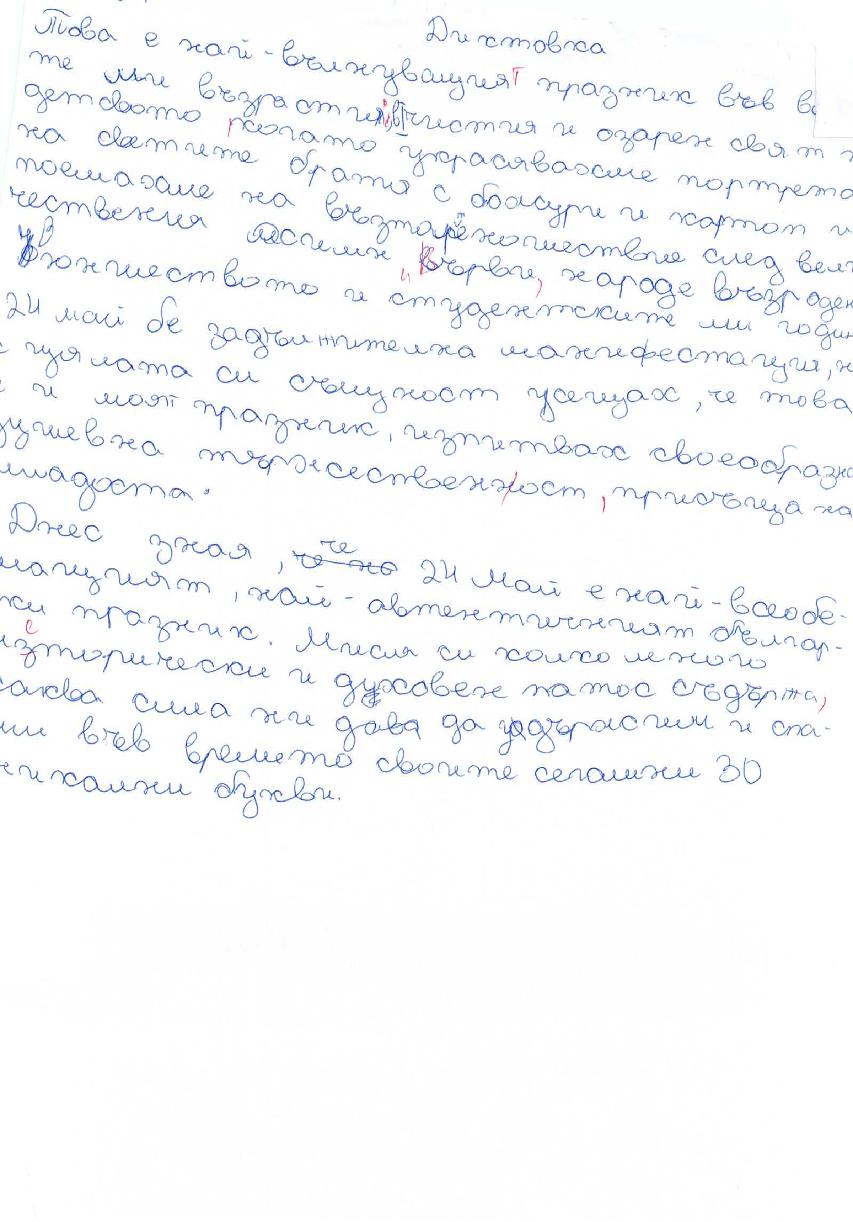 Диктовка
Това е най-вълнуващият празник във
те ми възрасти в чистия и озарен свят
детството когато украсявахме портрета
на светите братя с божури и картон и
поемахме на възторжено шествие след
чествения химн „Върви, народе възроден
В юношеството и студентските ми годин
24 май бе задължителна манифестация, н
с цялата си същност усещах, че това
е и моят празник, изпитвах своеобразна
душевна тържественност, присъща на
младоста.
Днес зная, че не че 24 май е най-всеобе-
мащият, най-автентичният българ-
ки празник. Мисля си колко много
изторически и духовен патос съдържа,
каква сила ни дава да удържим и спа-
им във времето своите сегашни 30
уникални букви.